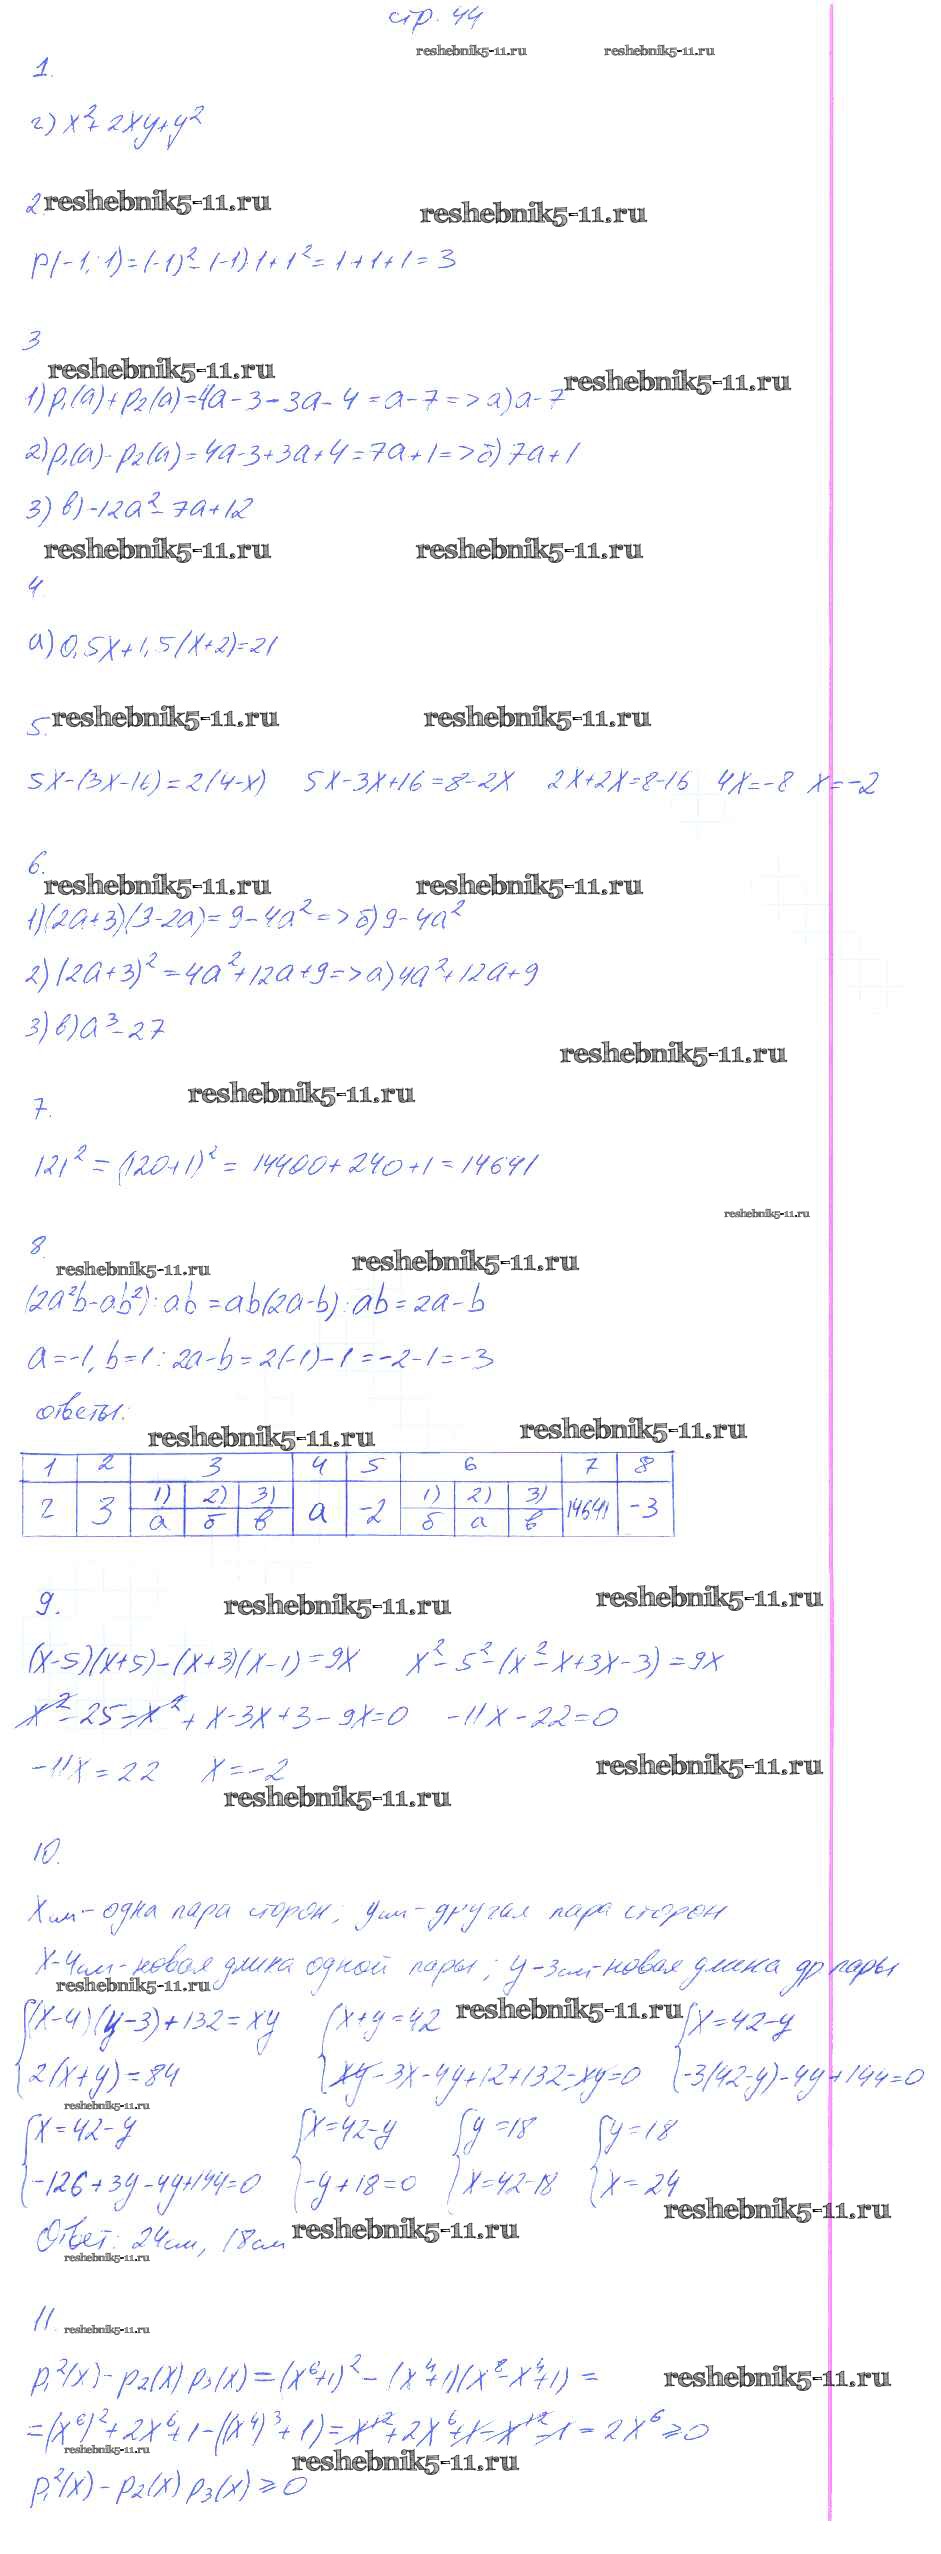 стр. 44
reshebnik5-11.ru reshebnik5-11.ru
1.
г) x²+2xy+y²
2. reshebnik5-11.ru reshebnik5-11.ru
p(-1; 1)=(-1)²-(-1)·1+1²=1+1+1=3
3
reshebnik5-11.ru reshebnik5-11.ru
1) p₁(a)+p₂(a)=4a-3-3a-4=a-7=>а) a-7
2) p₁(a)-p₂(a)=4a-3+3a+4=7a+1=>б) 7a+1
3) в) -12a²-7a+12
reshebnik5-11.ru reshebnik5-11.ru
4.
а) 0,5x+1,5(x+2)=21
5. reshebnik5-11.ru reshebnik5-11.ru
5x-(3x-16)=2(4-x) 5x-3x+16=8-2x 2x+2x=8-16 4x=-8 x=-2
6.
reshebnik5-11.ru reshebnik5-11.ru
1) (2a+3)(3-2a)=9-4a²=>б) 9-4a²
2) (2a+3)²=4a²+12a+9=>а) 4a²+12a+9
3) в) a³-27
reshebnik5-11.ru
reshebnik5-11.ru
7.
121²=(120+1)²=14400+240+1=14641
reshebnik5-11.ru
8.
reshebnik5-11.ru reshebnik5-11.ru
(2a²b-ab²):ab=ab(2a-b):ab=2a-b
a=-1, b=1: 2a-b=2(-1)-1=-2-1=-3
ответы:
reshebnik5-11.ru reshebnik5-11.ru
1 2 3 4 5 6 7 8
г 3 1) 2) 3) а -2 1) 2) 3) 14641 -3
а б в б а в
9. reshebnik5-11.ru reshebnik5-11.ru
(x-5)(x+5)-(x+3)(x-1)=9x x²-5²-(x²-x+3x-3)=9x
x²-25-x²+x-3x+3-9x=0 -11x-22=0
-11x=22 x=-2 reshebnik5-11.ru
reshebnik5-11.ru
10.
x см-одна пара сторон; y см-другая пара сторон
x-4см-новая длина одной пары; y-3см-новая длина др пары
reshebnik5-11.ru reshebnik5-11.ru
{(x-4)(y-3)+132=xy {x+y=42 {x=42-y
2(x+y)=84 xy-3x-4y+12+132-xy=0 -3(42-y)-4y+144=0
reshebnik5-11.ru
{x=42-y {x=42-y {y=18 {y=18
-126+3y-4y+144=0 -y+18=0 x=42-18 x=24
reshebnik5-11.ru
Ответ: 24см, 18см reshebnik5-11.ru
reshebnik5-11.ru
11. reshebnik5-11.ru
p₁²(x)-p₂(x)p₃(x)=(x⁶+1)²-(x⁴+1)(x⁸-x⁴+1)= reshebnik5-11.ru
=(x⁶)²+2x⁶+1-((x⁴)³+1)=x¹²+2x⁶+1-x¹²-1=2x⁶≥0
reshebnik5-11.ru reshebnik5-11.ru
p₁²(x)-p₂(x)p₃(x)≥0